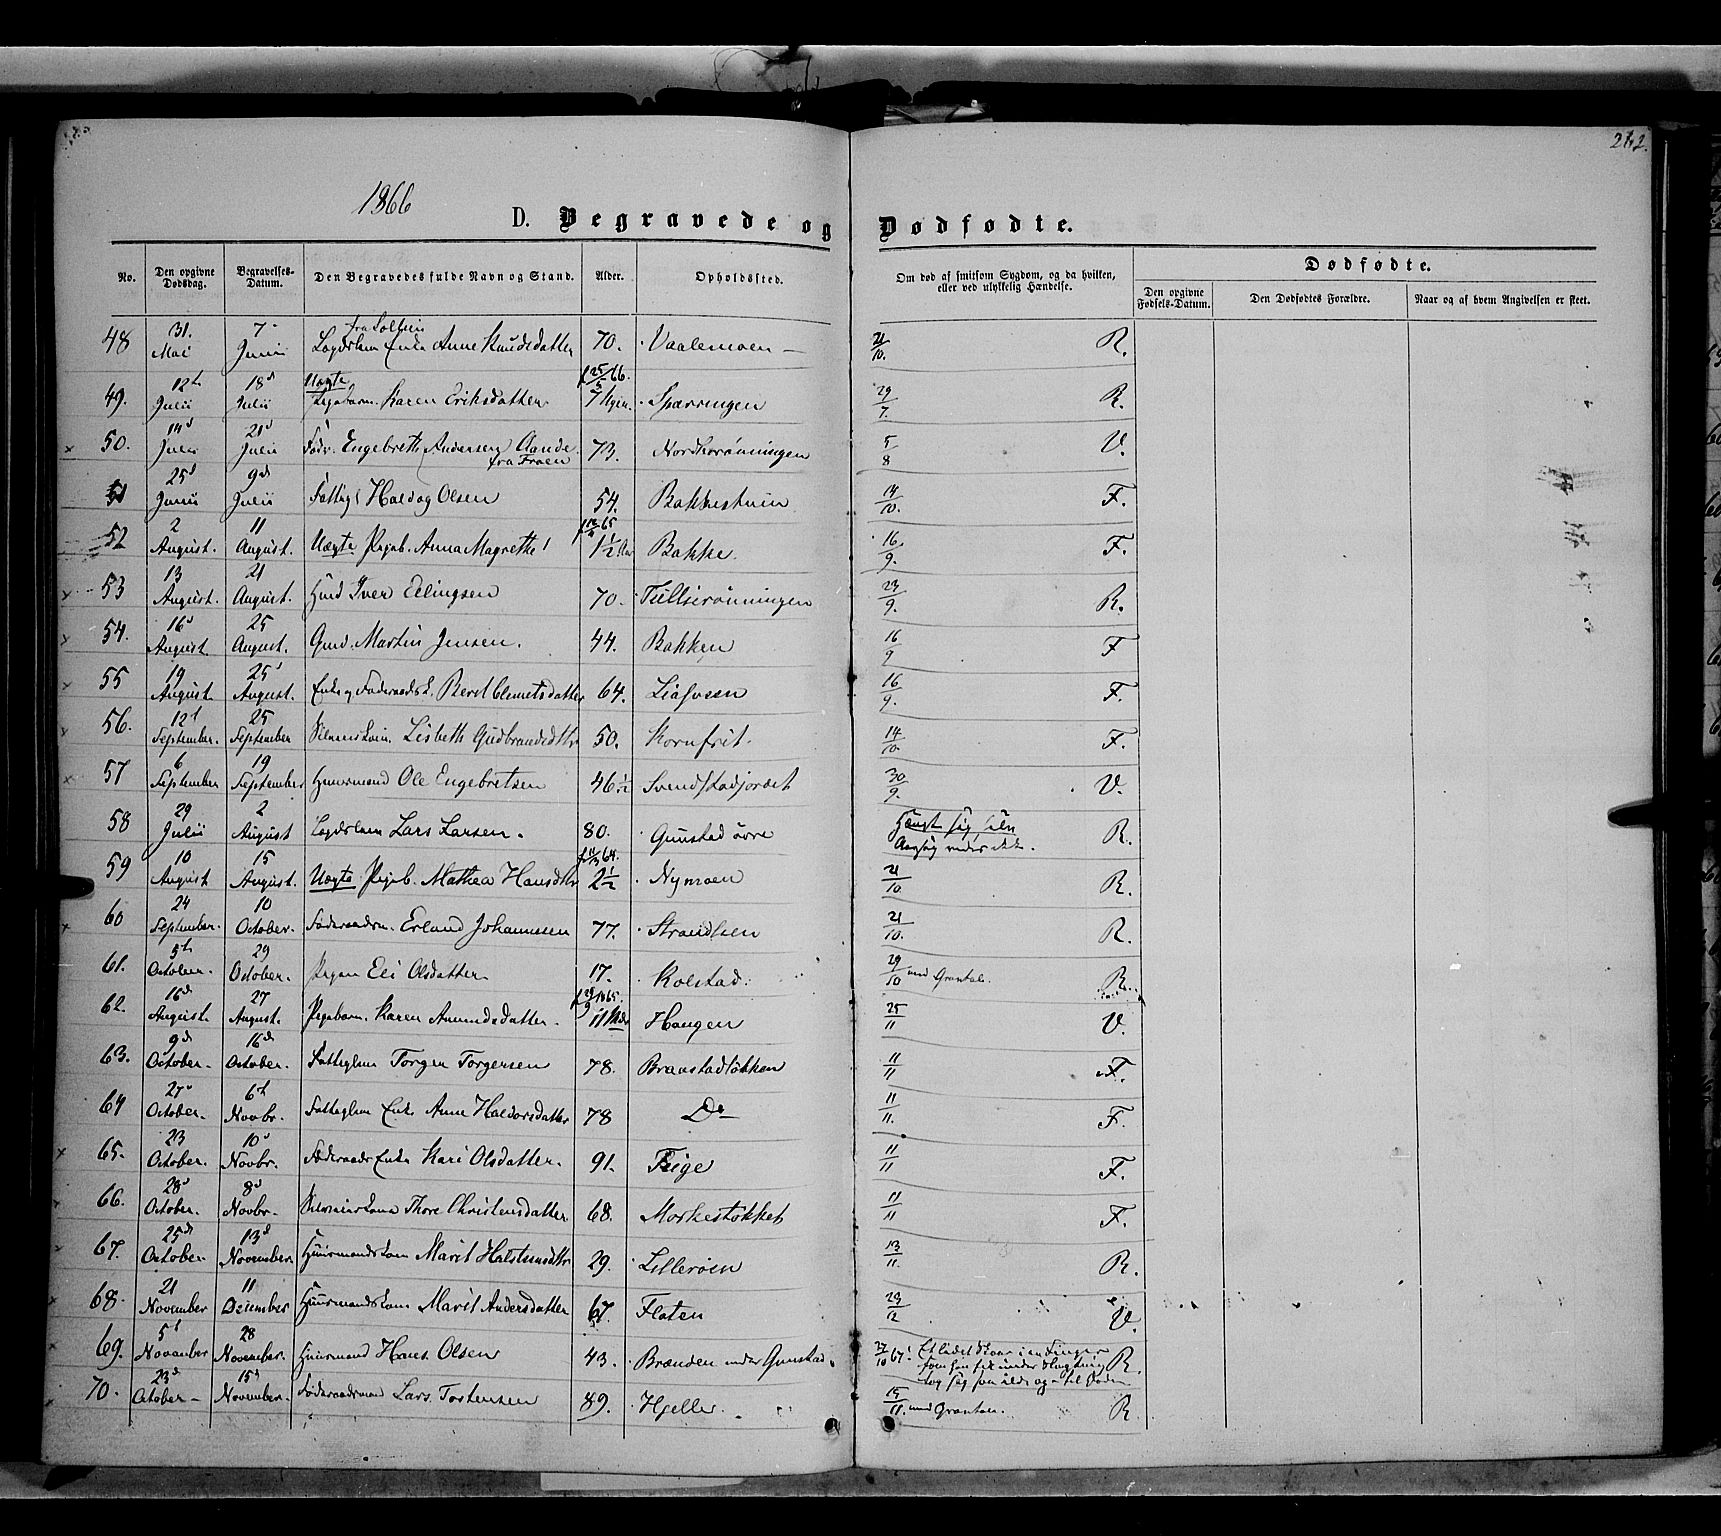 212.
1866
D. Begravede og Dødfødte.
No. Den opgivne Dødsdag. Begravelses-Datum. Den Begravedes fulde Navn og Stand. Alder. Opholdssted. Om død af smitsom Sygdom, og da hvilken, eller ved ulykkelig Hændelse. Dødfødte.
Den opgivne Fødsels-Datum. Den Dødfødtes Forældre. Naar og af hvem Angivelsen er skeet.
48 31. Mai 7 Junii Lægdslem Enke Anne Knudsdatter 70. Vaalemoen 21/10. R.
49. 12te Julii 18d Julii Uægte Pigebarn. Karen Eriksdatter f 25/5 66. 7 Ugir. Sparringen 29/7. R.
50. 14d Julii 21d Julii Føder. Engebreth Andersen Aande fra Froen 73. Nordhrønningen 5/8 V.
51 25d Junii 9d Julii Fattigl Haldog Olsen 54. Bakkestuin 14/10. F.
52 2 August. 11 August. Uægte Pigeb. Anna Magrethe 1½ Bakke. 16/9. F.
53 13 August. 21 August. Huusm. Iver Ellingsen 70. Tullserønningen 23/9. R.
54. 16d August. 25 August. Gmd. Martin Jensen. 44. Bakken 16/9 F
55 19 August 25 August. Enke og Føderaadsk. Berit Clemetsdatter 64. Liasveen 16/9. F.
56. 12t September. 25 September Lisbeth Gudbrandsdtr 50. Kornfrit. 14/10 F.
57 6 September 19 September Huusmand Ole Engebretsen 46½ Svendstadjordet 30/9. V.
58 29 Julii 2 August Lægdslem Lars Larsen. 80. Gunstad øvre Hængt sig selv R.
59 10 August 15 August. Uægte Pigeb. Mathea Hansdtr f 11/3 64. 2½ Nymoen 21/10 R.
60 24 September. 10 October. Føderaadsm. Erland Johannesen 77. Strandlien 21/10. R.
61. 5te October. 29 October. Pigen Eli Olsdatter 17. Kolstad. 29/10 R.
62. 16d August. 27 August. Pigebarn. Karen Amundsdatter. 11 Mdr Haugen 25/11 V.
63. 9d October. 16d October. Fattiglem Torger Torgersen 78. Braastadløkken 11/11 F.
64 27d October. 6t Novbr. Fattiglem Enke Anne Haldorsdatter 78 Do 11/11. F.
65. 23 October. 10d Novbr. Føderaads Enke Kari Olsdatter. 91. Teige 11/11 F.
66. 28d October. 8d Novbr. Thore Christensdatter 68. Morkestøkket 11/11 F.
67. 25d October. 13d November. Huusmandskone Marit Halstensdtr 29. Lillerøen 13/11. R.
68. 21 November 11 Dezember Huusmandskone Marit Andersdatter 67. Flaten 23/12 V.
69. 5t November 28 November. Huusmand Hans Olsen 43. Brænden under Gunstad. Et lidet Saar i en Finger som han fik under Slagtning tog sig saa ilde og til Døden R.
70. 23d October 15d November. Føderaadsmand Lars Torstensen 89. Hjelle. 15/11. R